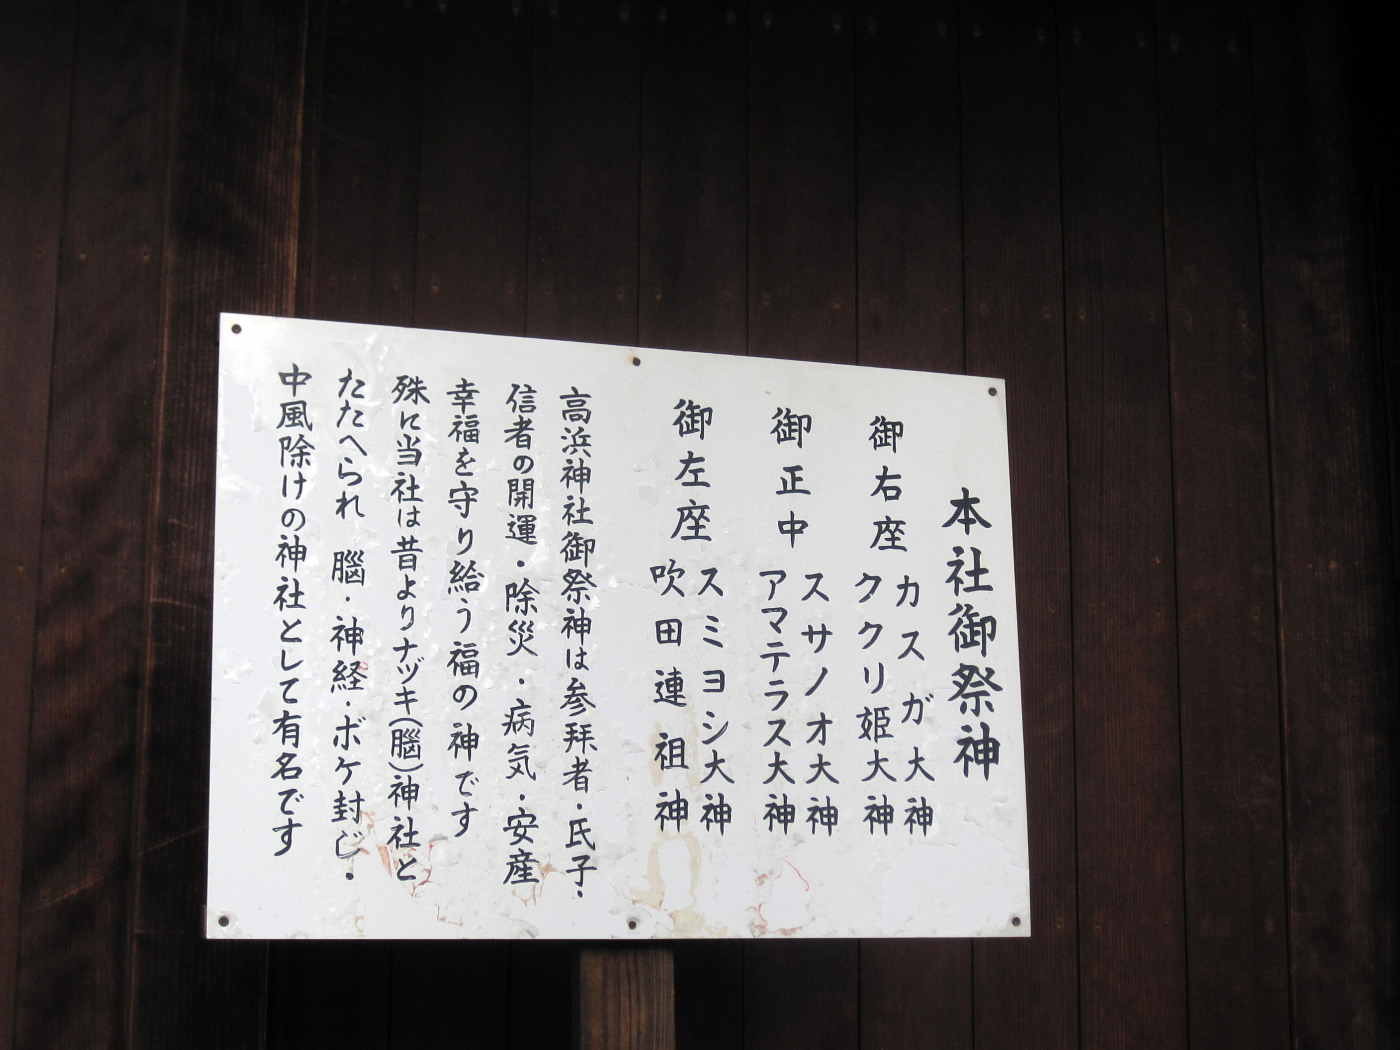 本社御祭神
御右座
カスガ大神
ククリ姫大神
御正中
スサノオ大神
アマテラス大神
御左座
スミヨシ大神
吹田連祖神
高浜神社御祭神は参拜者・氏子・
信者の開運・除災・病気・安産
幸福を守り給う福の神です
殊に当社は昔よりナヅキ(腦)神社と
たたへられ 腦・神経・ボケ封じ・
中風除けの神社として有名です